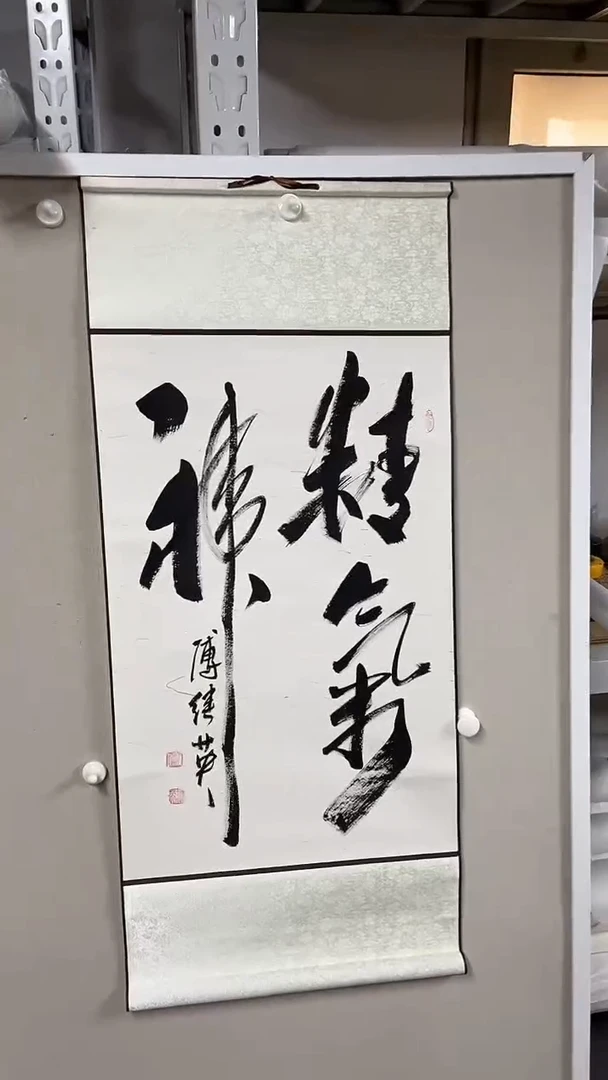 精氣
神
傅继英